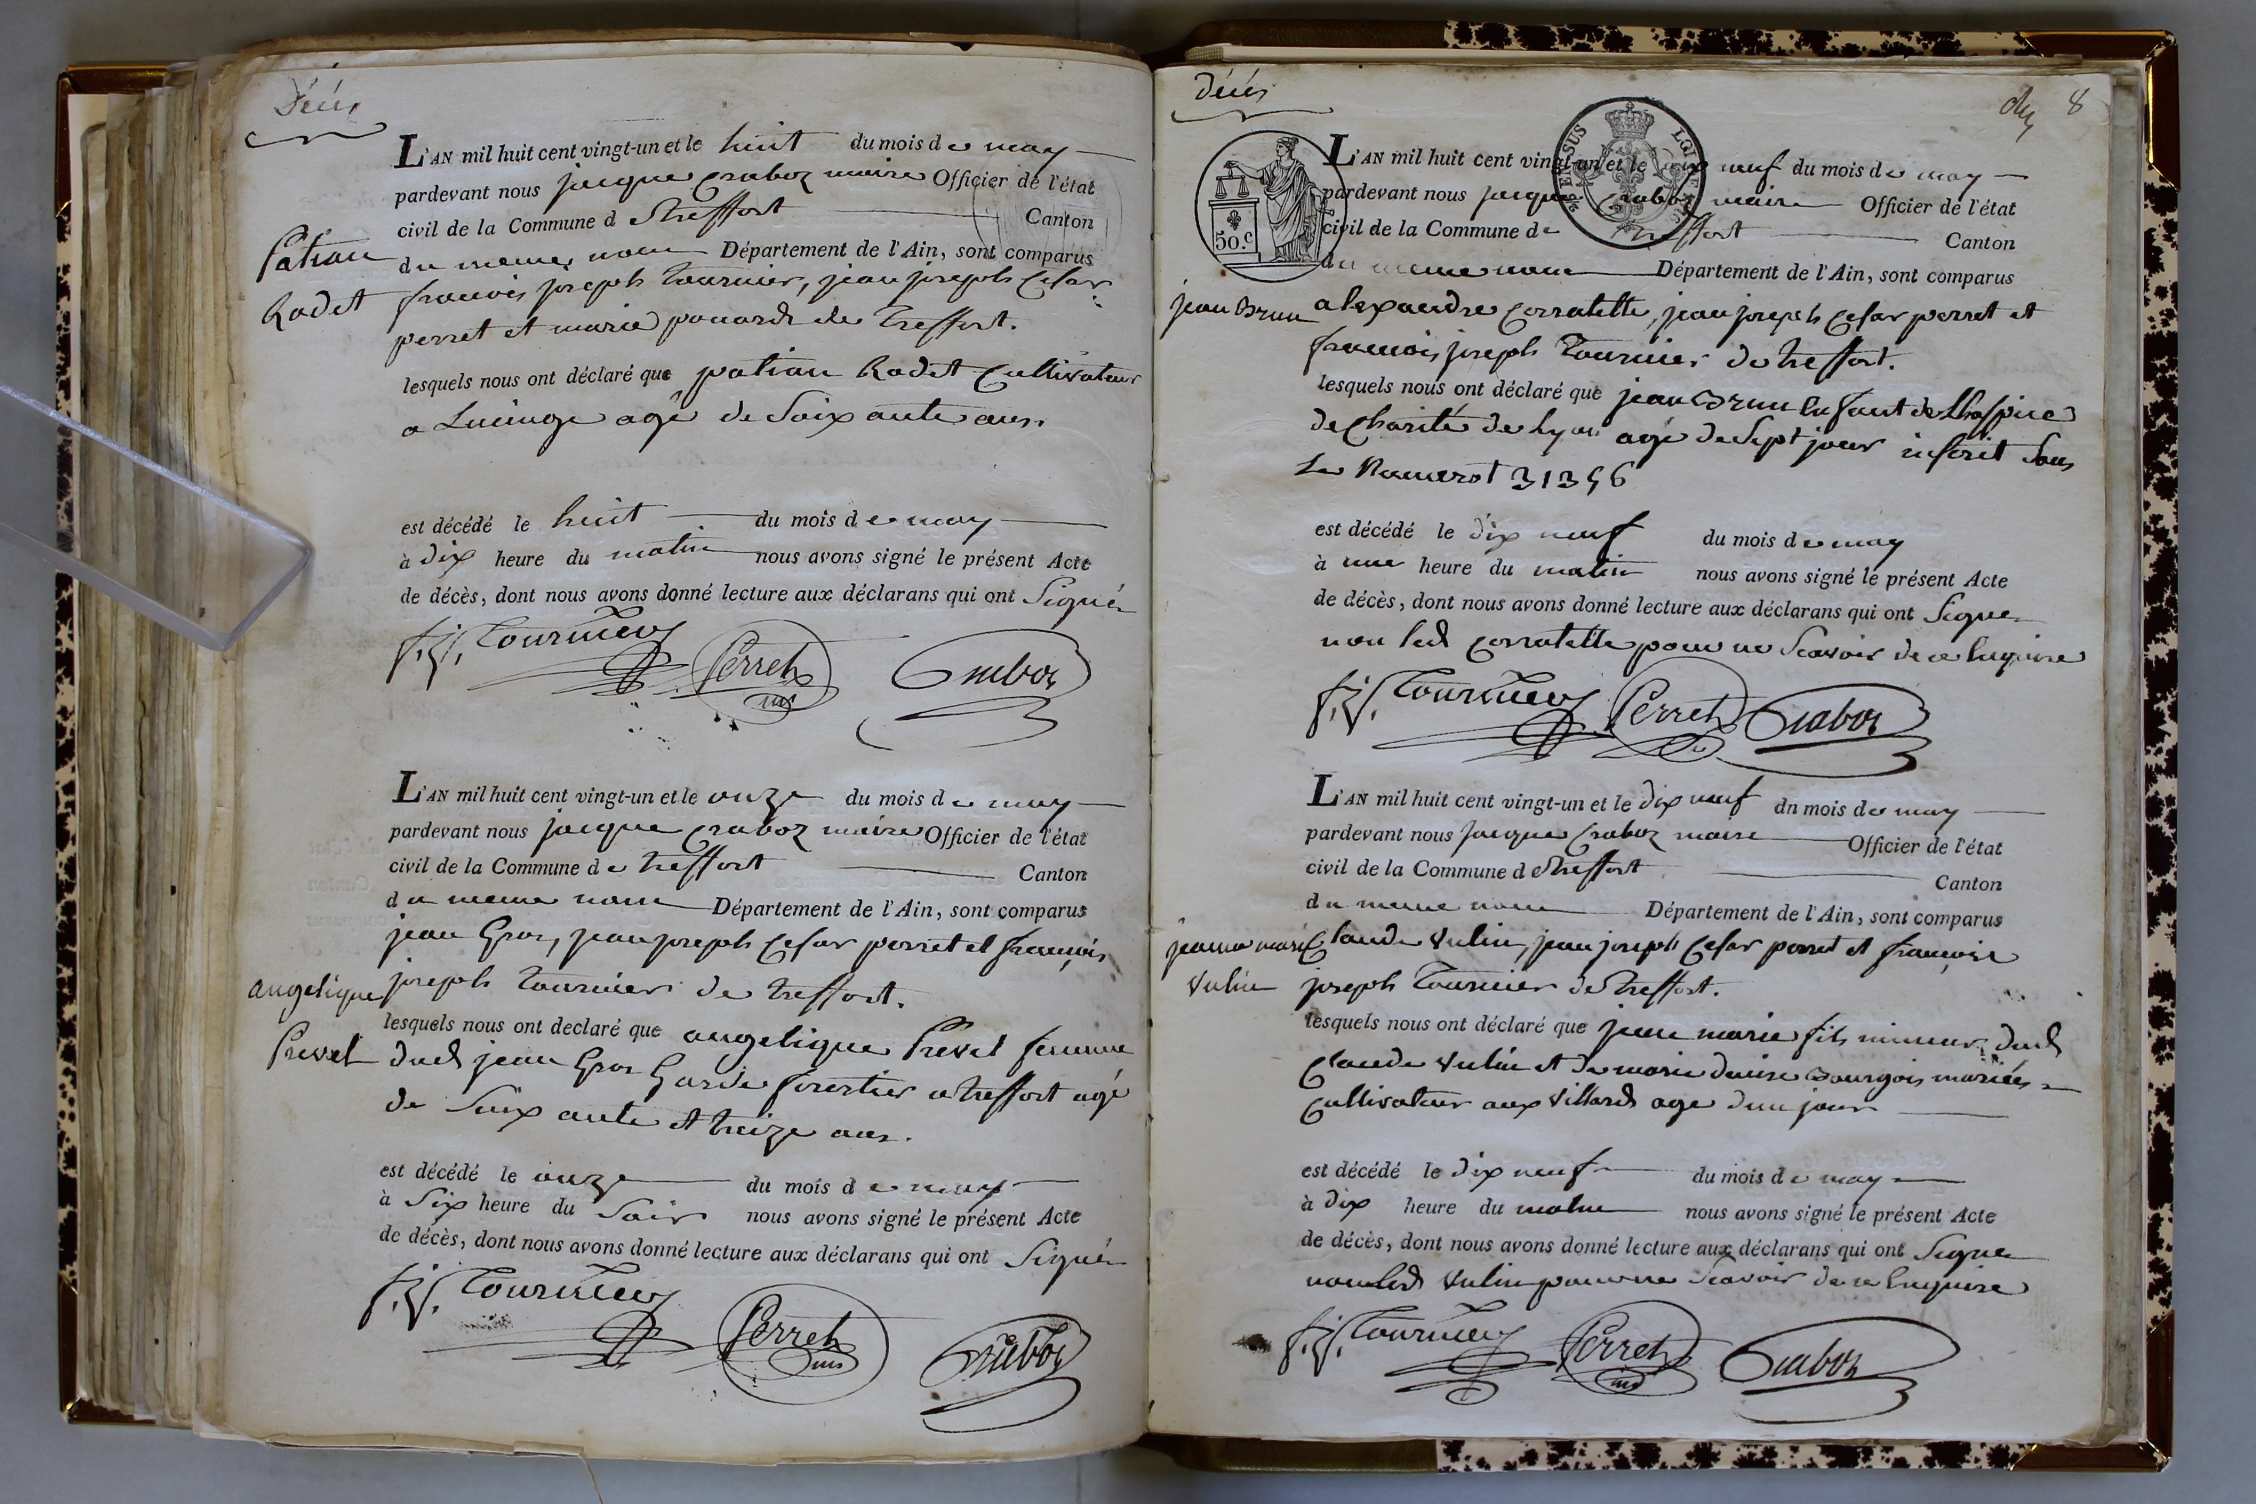 Décès
L'AN mil huit cent vingt-un et le huit du mois de may
pardevant nous jacque Craboz maire Officier de l'état
civil de la Commune de treffort Canton
du meme nom Département de l'Ain, sont comparus
francois joseph tournier, jean joseph Cesar
perret et marie de treffort.
Radet
lesquels nous ont déclaré que Radet Cultivateur
a Lucinge agé de Soixante ans.
est décédé le huit du mois de may
à dix heure du matin nous avons signé le présent Acte
de décès, dont nous avons donné lecture aux déclarans qui ont Signé
f. j. Tournier Perret Craboz
L'AN mil huit cent vingt-un et le onze du mois de may
pardevant nous jacque Craboz maire Officier de l'état
civil de la Commune de treffort Canton
du meme nom Département de l'Ain, sont comparus
jean Gros, jean joseph Cesar perret et françois
joseph tournier de treffort.
angelique
Prevel
lesquels nous ont declaré que angelique Prevel femme
dud jean Gros Garde forestier a treffort agé
de Soixante et treize ans.
est décédé le onze du mois de may
à Six heure du Soir nous avons signé le présent Acte
de décès, dont nous avons donné lecture aux déclarans qui ont Signé
f. j. Tournier Perret Craboz
décès
8
50.c
L'AN mil huit cent vingt-un et le dix neuf du mois de may
pardevant nous jacque Craboz maire Officier de l'état
civil de la Commune de treffort Canton
du meme nom Département de l'Ain, sont comparus
jean Brun
alexandre corratelle, jean joseph Cesar perret et
francois joseph tournier de treffort.
lesquels nous ont déclaré que jean Brun Enfant de Lhospice
de Charité de Lyon agé de Sept jour inscrit Sous
Le Numerot 31356
est décédé le dix neuf du mois de may
à une heure du matin nous avons signé le présent Acte
de décès, dont nous avons donné lecture aux déclarans qui ont Signe
non led corratelle pour ne Scavoir de ce Enquire
f. j. Tournier Perret Craboz
L'AN mil huit cent vingt-un et le dix neuf dn mois de may
pardevant nous Jacque Craboz maire Officier de l'état
civil de la Commune de treffort Canton
du meme nom Département de l'Ain, sont comparus
Vulin
Claude Vulin, jean joseph Cesar perret et françois
joseph tournier de treffort.
lesquels nous ont déclaré que jean marie fils mineur dud
Claude Vulin et de marie Bourgois mariés
Cultivateur aux Villards age dun jour
est décédé le dix neuf du mois de may
à dix heure du matin nous avons signé le présent Acte
de décès, dont nous avons donné lecture aux déclarans qui ont Signe
non led Vulin pour ne Scavoir de ce Enquire
f. j. Tournier Perret Craboz